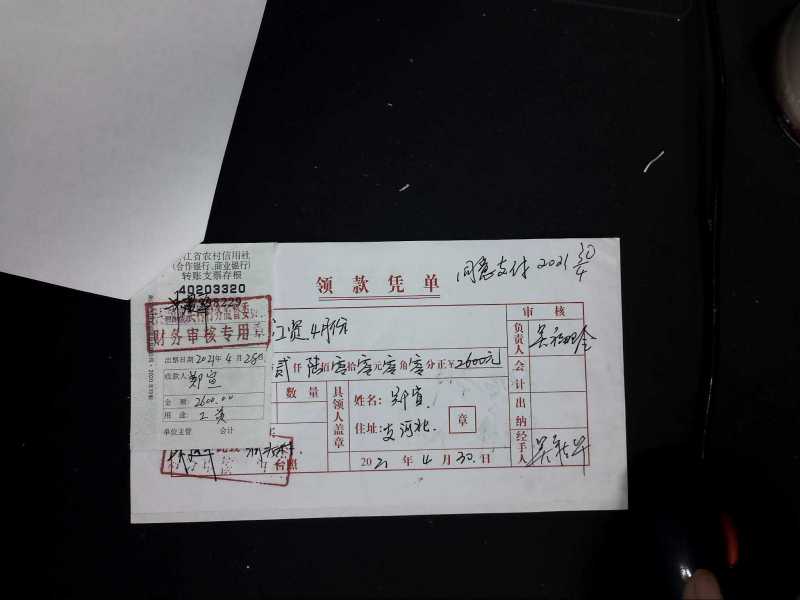 江省农村信用社
(合作银行、商业银行)
转账支票存根
40203320
8229
财务审核专用章
出票日期2021年4月28日
收款人:郑宣
金额:2600.00
用途:工资
单位主管 会计
领款凭单
同意支付 2021 30/4
工资4月份
贰仟陆佰零拾零元零角零分正¥2600元
数量
具领人盖章
姓名:郑宣
住址:支河北.
章
台照
2021年4月30日
审核
负责人
会计
出纳
经手人